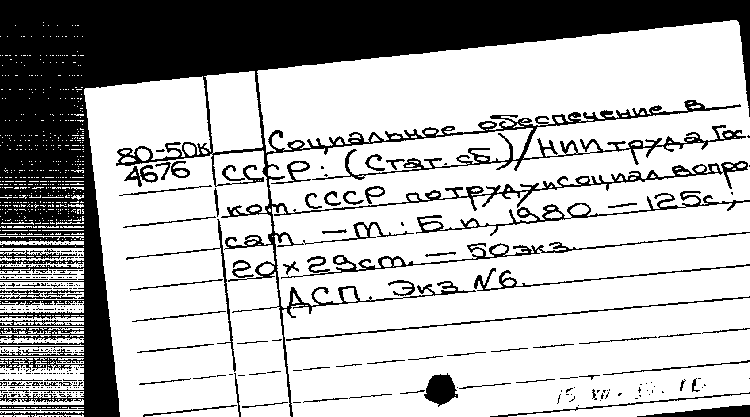 80-50к Социальное обеспечение в
4676 СССР: (Стат. сб.)/НИИ труда, Гос.
ком. СССР по труду и социал. вопро-
сам. – М.: Б. и., 1980. – 125с.;
20×29см. – 50экз.
ДСП. Экз №6.